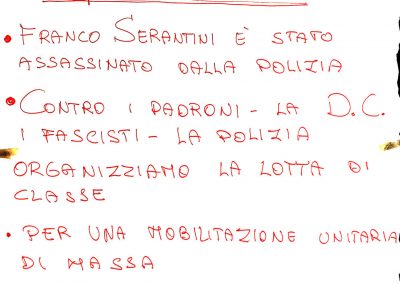 • FRANCO SERANTINI È STATO
ASSASSINATO DALLA POLIZIA
• CONTRO I PADRONI - LA D.C.
I FASCISTI - LA POLIZIA
ORGANIZZIAMO LA LOTTA DI
CLASSE
• PER UNA MOBILITAZIONE UNITARIA
DI MASSA